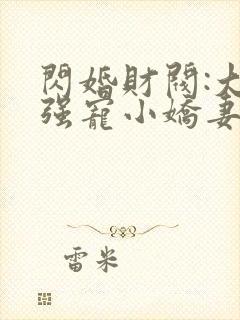 閃婚財閥:大
强寵小嬌妻
雷米